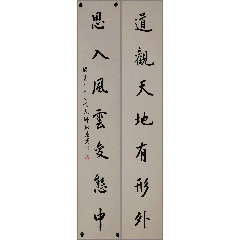 道觀天地有形外
思入風雲變態中